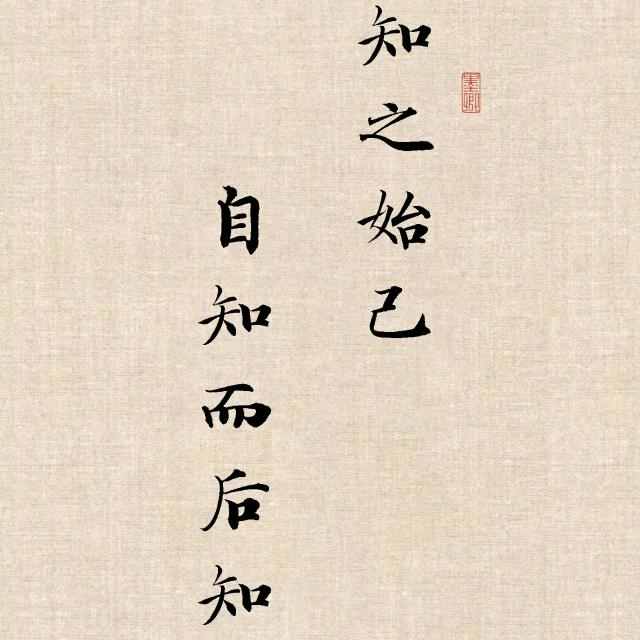 知之始己
自知而后知
墨卿